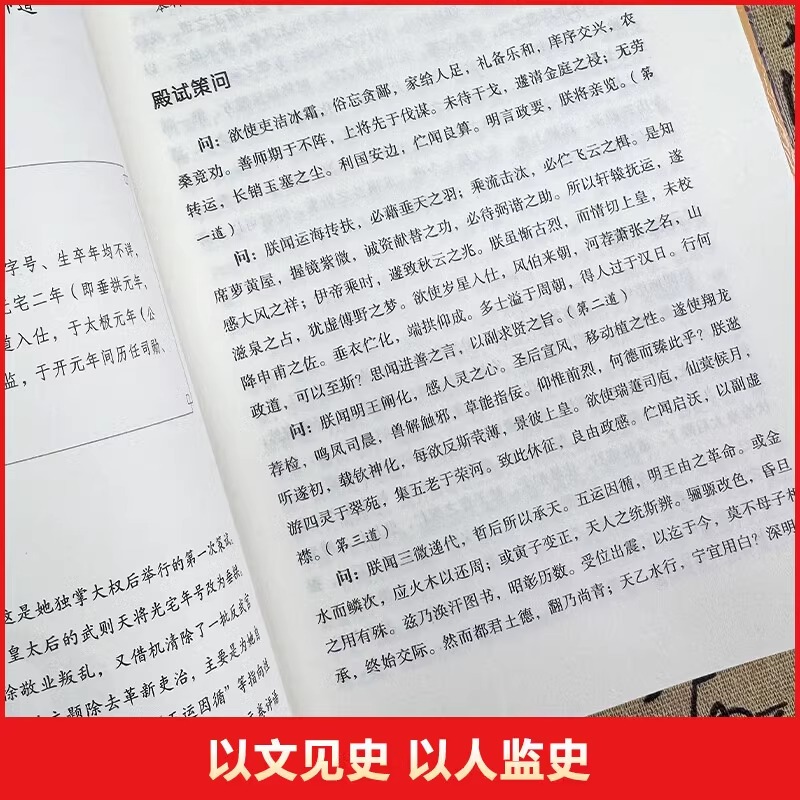 字号、生卒年均不详,
光宅二年(即垂拱元年,
道入仕,于太极元年(公
监,于开元年间历任司勋、
这是她独掌大权后举行的第一次策试,
皇太后的武则天将光宅年号改为垂拱,
徐敬业叛乱,又借机清除了一批反武官
主题除去革新吏治,主要是为她自
五运因循”等指向
殿试策问
问:欲使吏洁冰霜,俗忘贪鄙,家给人足,礼备乐和,庠序交兴,农
桑竞劝。善师期于不阵,上将先于伐谋。未待干戈,遽清金庭之祲;无劳
转运,长销玉塞之尘。利国安边,伫闻良算。明言政要,朕将亲览。(第
一道)
问:朕闻运海抟扶,必藉垂天之羽;乘流击汰,必伫飞云之楫。是知
席萝黄屋,握镜紫微,诚资献替之功,必待弼谐之助。所以轩辕抚运,遂
感大风之祥;伊帝乘时,遽致秋云之兆。朕虽惭古烈,而情切上皇,未校
滋泉之占,犹虚傅野之梦。欲使岁星入仕,风伯来朝,河荐萧张之名,山
降申甫之佐。垂衣伫化,端拱仰成。多士溢于周朝,得人过于汉日。行何
政道,可以至斯?思闻进善之言,以副求贤之旨。(第二道)
问:朕闻明王阐化,感人灵之心。圣后宣风,移动植之性。遂使翔龙
荐检,鸣凤司晨,兽解触邪,草能指佞。仰惟前烈,何德而臻此乎?朕逖
听遂初,载钦神化,每欲反斯莸薄,景彼上皇。欲使瑞莲司庖,仙蓂候月,
游四灵于翠苑,集五老于荣河。致此休征,良由政感。伫闻启沃,以副虚
襟。(第三道)
问:朕闻三微递代,哲后所以承天。五运因循,明王由之革命。或金
水而鳞次,应火木以还周;或寅子变正,天人之统斯辨。骊騵改色,昏旦
之用有殊。兹乃涣汗图书,昭彰历数。受位出震,以迄于今,莫不母子相
承,终始交际。然而都君土德,翻乃尚青;天乙水行,宁宜用白?深明
以文见史 以人监史